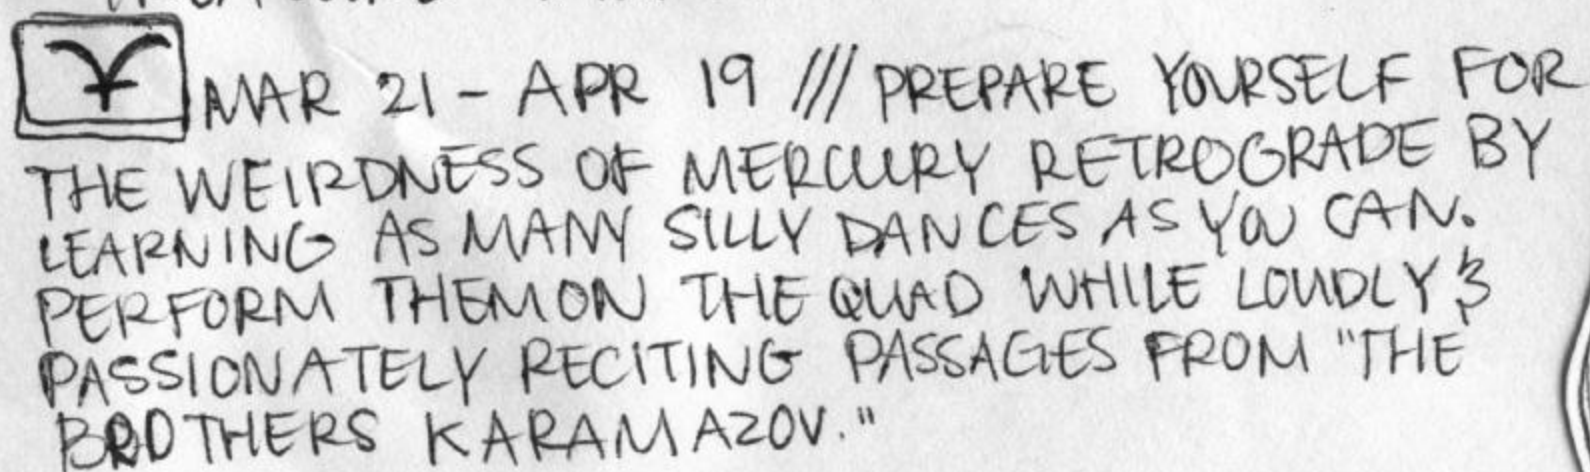 MAR 21 - APR 19 /// PREPARE YOURSELF FOR
THE WEIRDNESS OF MERCURY RETROGRADE BY
LEARNING AS MANY SILLY DANCES AS YOU CAN.
PERFORM THEM ON THE QUAD WHILE LOUDLY &
PASSIONATELY RECITING PASSAGES FROM "THE
BROTHERS KARAMAZOV."